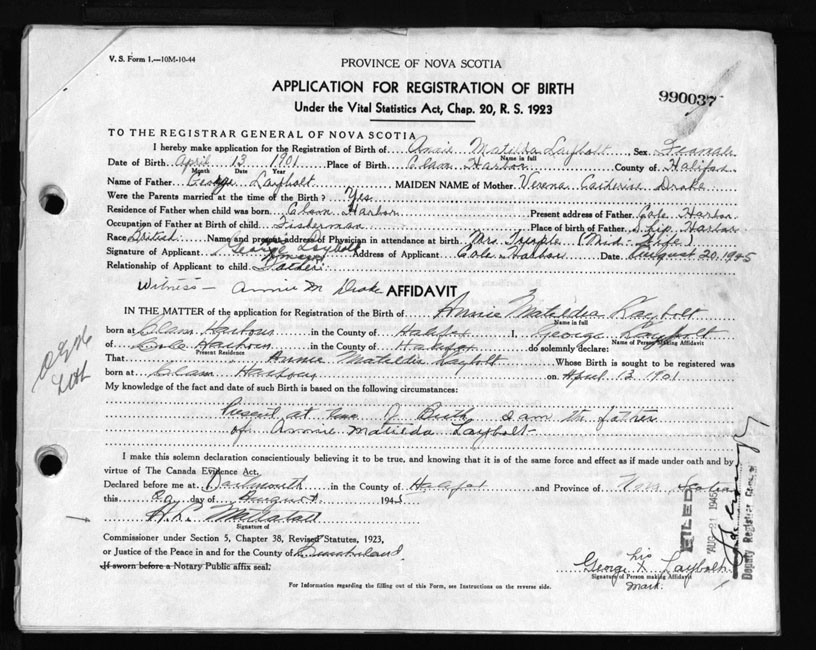 V. S. Form 1.—10M-10-44
PROVINCE OF NOVA SCOTIA
APPLICATION FOR REGISTRATION OF BIRTH
990037
Under the Vital Statistics Act, Chap. 20, R. S. 1923
TO THE REGISTRAR GENERAL OF NOVA SCOTIA
I hereby make application for the Registration of Birth of Annie Matilda Laybolt Sex Female
Name in full
Date of Birth April 13 1901 Place of Birth Clam Harbor County of Halifax
Month Date Year
Name of Father George Laybolt MAIDEN NAME of Mother Verena Drake
Were the Parents married at the time of the Birth? Yes
Residence of Father when child was born Clam Harbor Present address of Father Cole Harbor
Occupation of Father at Birth of child Fisherman Place of birth of Father Ship Harbor
Race British Name and present address of Physician in attendance at birth Mrs. (Mid-Wife)
Signature of Applicant George Laybolt Address of Applicant Cole Harbor Date August 20, 1945
Relationship of Applicant to child Father
Witness — Annie M Drake AFFIDAVIT
IN THE MATTER of the application for Registration of the Birth of Annie Matilda Laybolt
Name in full
born at Clam Harbour in the County of Halifax I, George Laybolt
Name of Person Making Affidavit
of Cole Harbour in the County of Halifax do solemnly declare:
Present Residence
That Annie Matilda Laybolt Whose Birth is sought to be registered was
born at Clam Harbour on April 13 1901
My knowledge of the fact and date of such Birth is based on the following circumstances:
Present at time of Birth I am the father
of Annie Matilda Laybolt
I make this solemn declaration conscientiously believing it to be true, and knowing that it is of the same force and effect as if made under oath and by
virtue of The Canada Evidence Act.
Declared before me at Dartmouth in the County of Halifax and Province of Nova Scotia
this 20 day of August 1945
Signature of
Commissioner under Section 5, Chapter 38, Revised Statutes, 1923,
or Justice of the Peace in and for the County of Cumberland
If sworn before a Notary Public affix seal.
George his X Laybolt
Signature of Person making Affidavit
Mark
For Information regarding the filling out of this Form, see Instructions on the reverse side.
FILED
AUG 21 1945
Deputy Registrar General